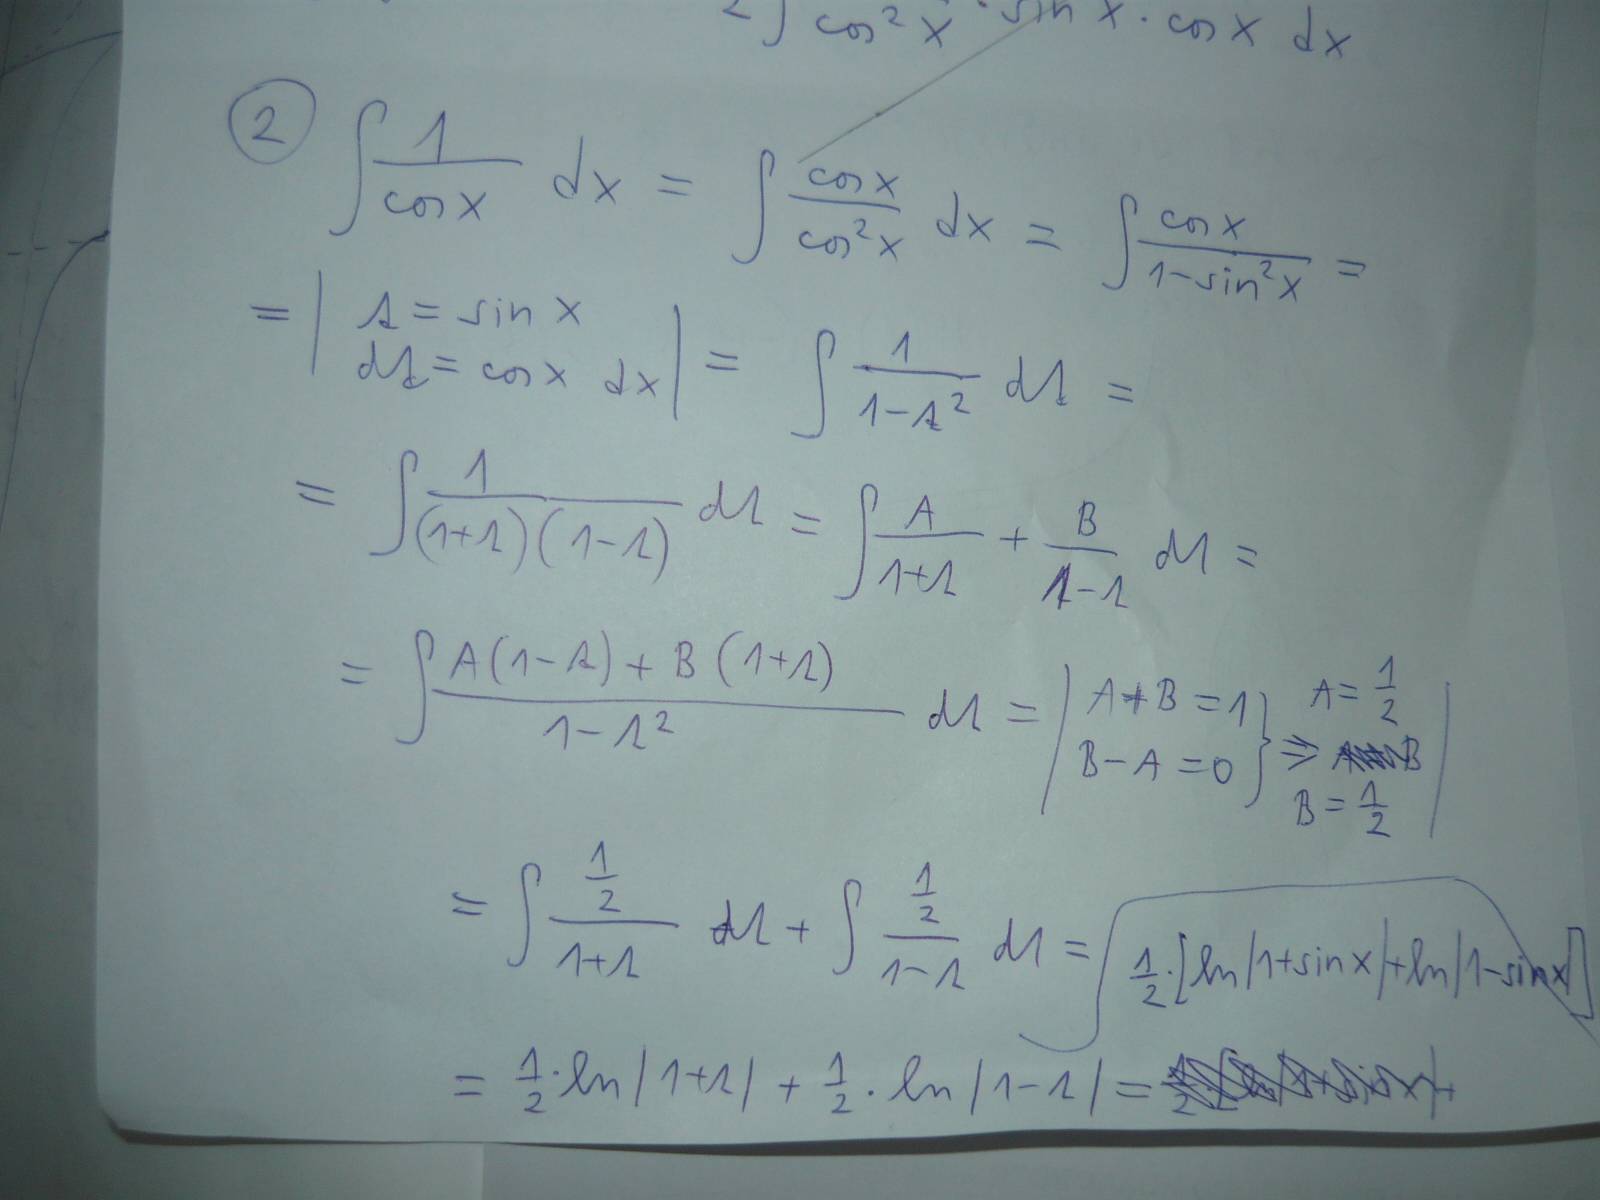 2∫ cos²x · sin x · cos x dx
② ∫ 1/cos x dx = ∫ cos x/cos²x dx = ∫ cos x/1-sin²x =
= | t = sin x
dt = cos x dx | = ∫ 1/1-t² dt =
= ∫ 1/(1+t)(1-t) dt = ∫ A/1+t + B/1-t dt =
= ∫ A(1-t) + B(1+t)/1-t² dt = | A+B=1
B-A=0 } ⇒ A=1/2
B
B=1/2 |
= ∫ 1/2/1+t dt + ∫ 1/2/1-t dt = 1/2·[ln|1+sin x|+ln|1-sin x|]
= 1/2·ln|1+t| + 1/2·ln|1-t| =